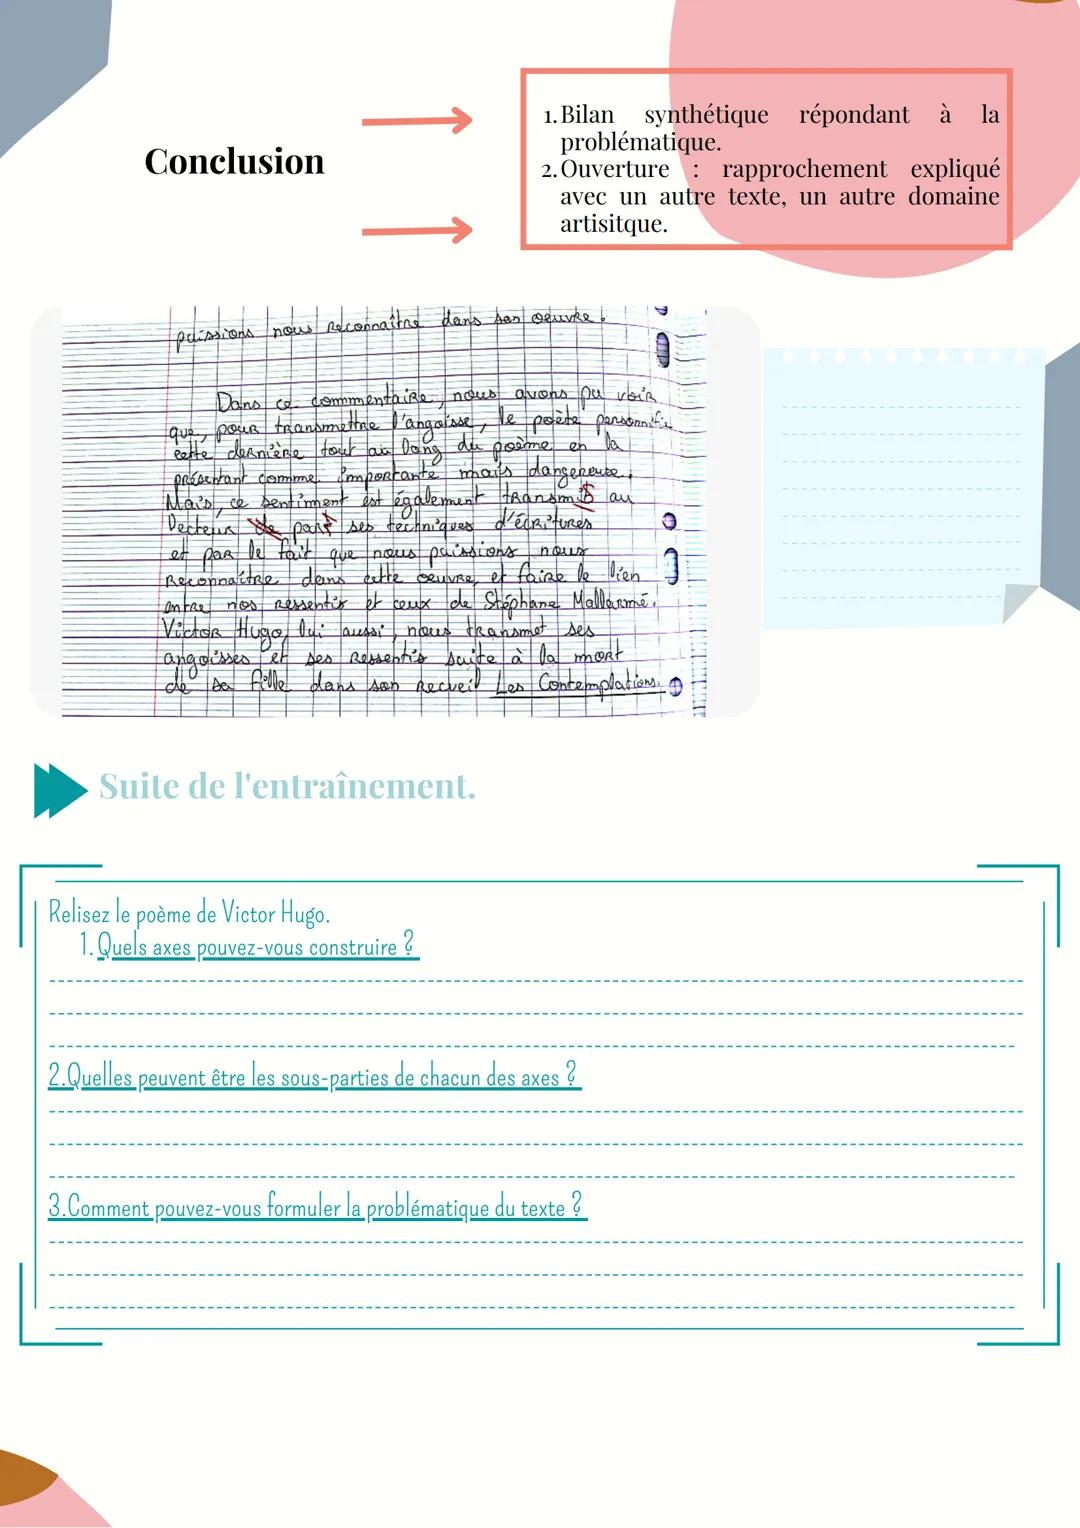 Conclusion
1. Bilan synthétique répondant à la
problématique.
2. Ouverture : rapprochement expliqué
avec un autre texte, un autre domaine
artisitque.
puissions nous reconnaître dans son oeuvre.
Dans ce commentaire, nous avons pu voir
que, pour transmettre l'angoisse, le poète personnifie
cette dernière tout au long du poème en la
présentant comme importante mais dangereuse.
Mais, ce sentiment est également transmis au
lecteur de part ses techniques d'écritures
et par le fait que nous puissions nous
reconnaître dans cette oeuvre, et faire le lien
entre nos ressentis et ceux de Stéphane Mallarmé.
Victor Hugo, lui aussi, nous transmet ses
angoisses et ses ressentis suite à la mort
de sa fille dans son recueil Les Contemplations.
Suite de l'entraînement.
Relisez le poème de Victor Hugo.
1. Quels axes pouvez-vous construire ?
2.Quelles peuvent être les sous-parties de chacun des axes ?
3.Comment pouvez-vous formuler la problématique du texte ?